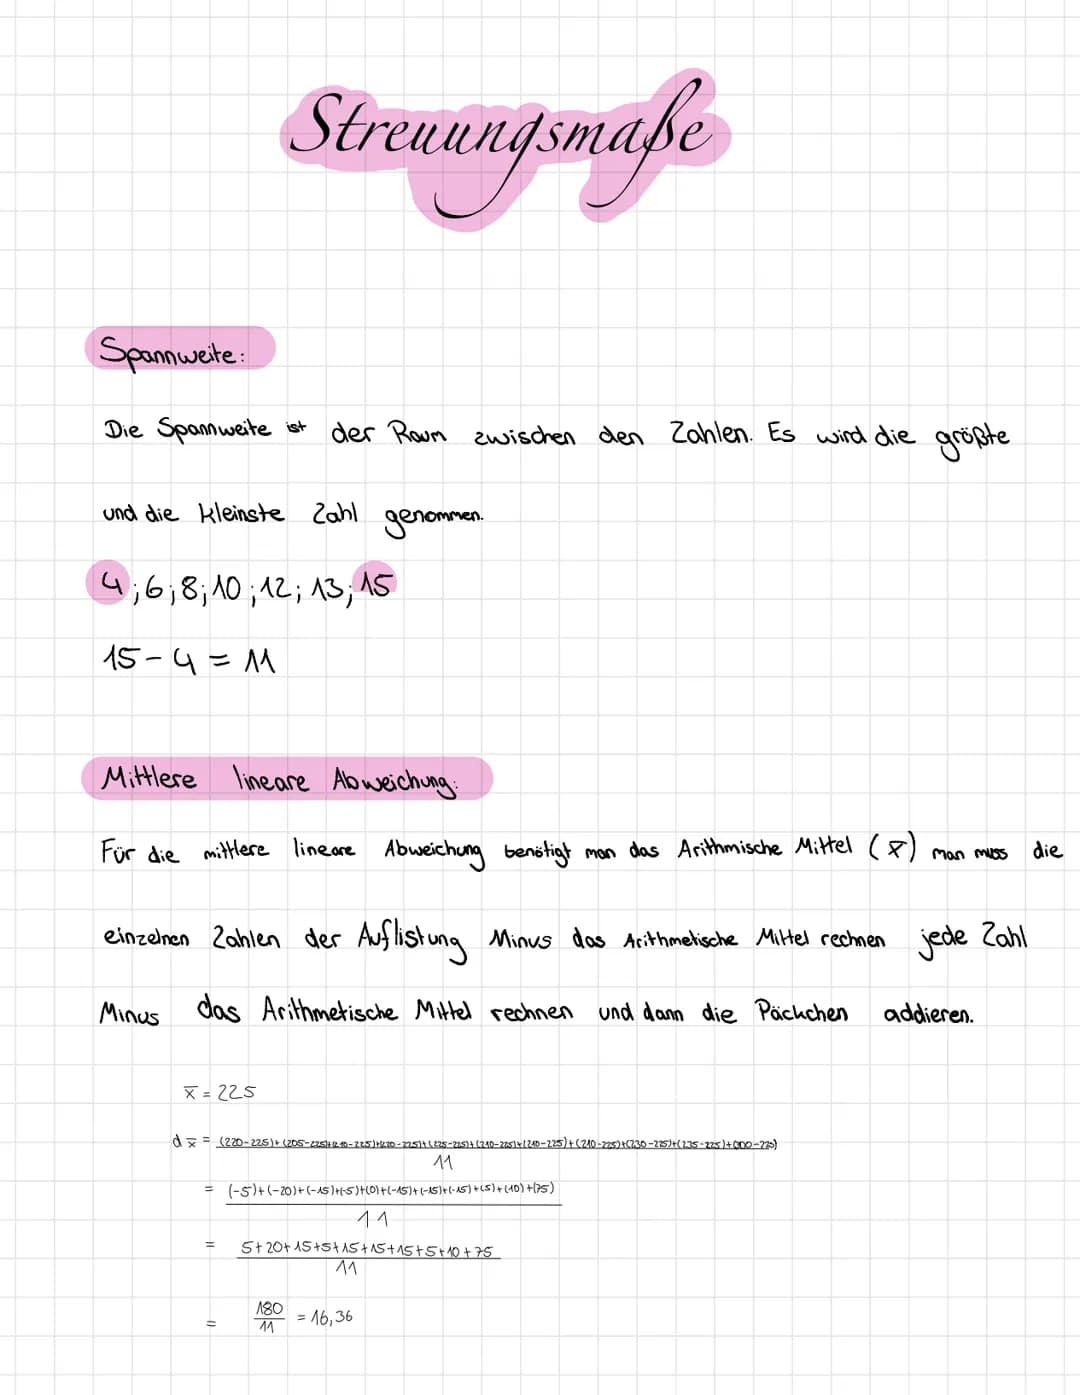 Streuungsmaße
Spannweite:
Die Spannweite ist der Raum zwischen den Zahlen. Es wird die größte
und die kleinste Zahl genommen.
4;6;8;10;12;13;15
15-4 = 11
Mittlere lineare Abweichung:
Für die mittlere lineare Abweichung benötigt man das Arithmische Mittel (x̄) man muss die
einzelnen Zahlen der Auflistung Minus das Arithmetische Mittel rechnen jede Zahl
Minus das Arithmetische Mittel rechnen und dann die Päckchen addieren.
x̄ = 225
d x̄ = (220-225)+(205-225)+(210-225)+(220-225)+(225-225)+(210-225)+(210-225)+(210-225)+(230-225)+(235-225)+(300-225)
11
= (-5)+(-20)+(-15)+(-5)+(0)+(-15)+(-15)+(-15)+(5)+(10)+(75)
11
= 5+20+15+5+15+15+15+5+10+75
11
= 180
11 = 16,36